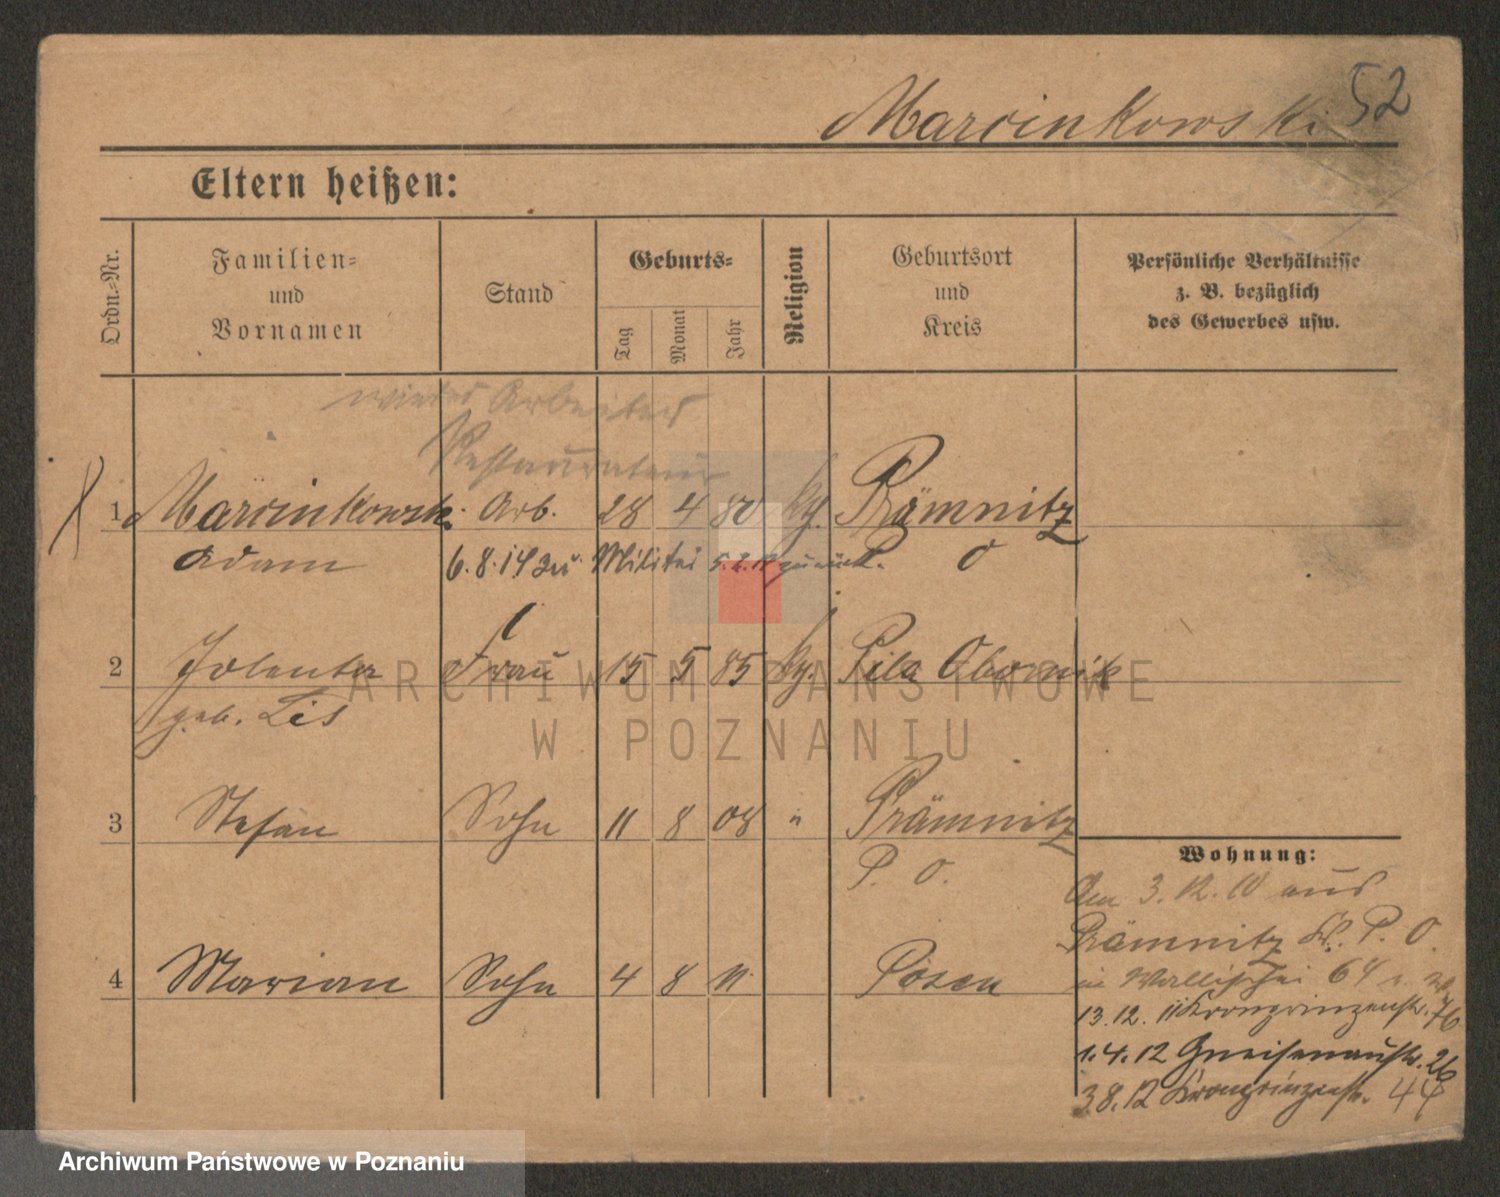 Marcinkowski 52
Eltern heißen:
Ordn.-Nr.
Familien-
und
Vornamen
Stand
Geburts-
Tag
Monat
Jahr
Religion
Geburtsort
und
Kreis
Persönliche Verhältnisse
z. B. bezüglich
des Gewerbes usw.
wieder Arbeiter
Restaurateur
1 Marcinkowski Arb. 28 4 80 kg. Prämnitz
Adam 6.8.14 zu Militär zurück. O
2 Jolenta Frau 15 5 85 kg. Pila Obornik
geb. Lis
3 Stefan Sohn 11 8 08 " Prämnitz
P. O.
4 Marian Sohn 4 8 11. Posen
Wohnung:
Am 3.12.10 aus
Prämnitz Kr. P. O.
in Wallischei 64
13.12.11 Kronprinzenstr. 76
1.4.12 Gneisenaustr. 26
3.8.12 Kronprinzenstr. 44
ARCHIWUM PAŃSTWOWE
W POZNANIU
Archiwum Państwowe w Poznaniu